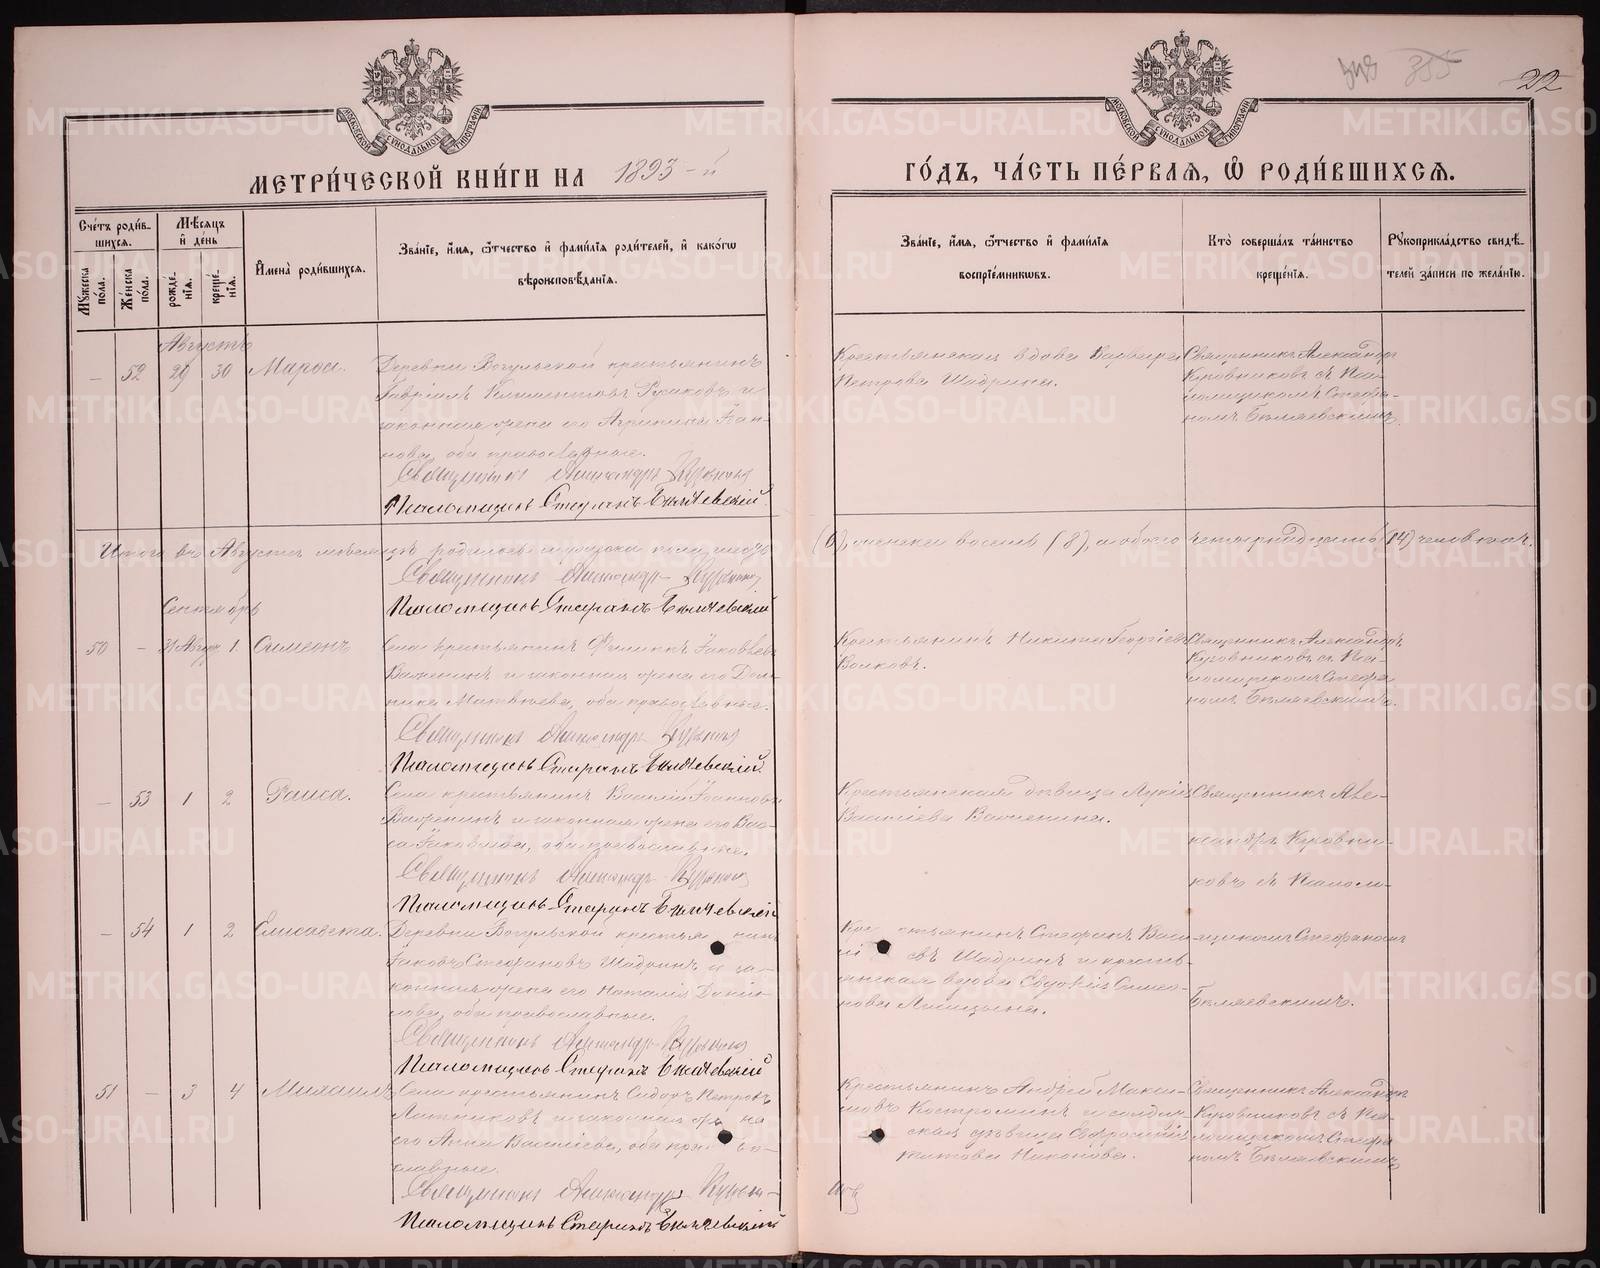 МЕТРИ́ЧЕСКОЙ КНИ́ГИ НА 1893-й
ГО́ДЪ, ЧА́СТЬ ПЕ́РВАѦ, Ѡ҆ РОДИ́ВШИХСѦ.
355
22
МОСКОВСКОЙ СѴНОДАЛЬНОЙ ТИПОГРАФІИ
МОСКОВСКОЙ СѴНОДАЛЬНОЙ ТИПОГРАФІИ
Сче́тъ роди́в-
шихсѧ.
Мꙋ́жеска по́ла.
Же́нска по́ла.
Мѣ́сѧцъ
и҆ де́нь
рожде́-
нїѧ.
креще́-
нїѧ.
И҆мена̀ роди́вшихсѧ.
Зва́нїе, и҆́мѧ, ѻ҆́тчество и҆ фами́лїѧ роди́телей, и҆ како́гѡ
вѣроисповѣ́данїѧ.
Зва́нїе, и҆́мѧ, ѻ҆́тчество и҆ фами́лїѧ
воспрїе́мниковъ.
Кто̀ соверша́лъ та́инство
креще́нїѧ.
Рꙋкоприкла́дство свидѣ́-
телей за́писи по жела́нїю.
Августъ
— 52 29 30 Марѳа.
Деревни Вогульской крестьянинъ
Гавріилъ Климентовъ Русаковъ и
законная жена его Агрипина Іоан-
нова, оба православные.
Священникъ Александръ Кузовниковъ
Псаломщикъ Стефанъ Бѣляевскій
Крестьянская вдова Варвара
Петрова Шадрина.
Священникъ Александръ
Кузовниковъ съ Пса-
ломщикомъ Стефа-
номъ Бѣляевскимъ.
Итого въ Августѣ мѣсяцѣ родилось мужска пола шесть
(6), женска восемь (8), а обоего четырнадцать (14) человѣкъ.
Священникъ Александръ Кузовниковъ
Псаломщикъ Стефанъ Бѣляевскій
Сентябрь
50 — 31 Авгус. 1. Симеонъ
Села крестьянинъ Филиппъ Іаковлевъ
Важенинъ и законная жена его Дом-
ника Матвѣева, оба православные.
Священникъ Александръ Кузовниковъ
Псаломщикъ Стефанъ Бѣляевскій.
Крестьянинъ Никита Георгіевъ
Волковъ.
Священникъ Александръ
Кузовниковъ съ Пса-
ломщикомъ Стефа-
номъ Бѣляевскимъ.
— 53 1 2 Раиса.
Села крестьянинъ Василій Іоанновъ
Важенинъ и законная жена его Вас-
са Іаковлева, оба православные.
Священникъ Александръ Кузовниковъ
Псаломщикъ Стефанъ Бѣляевскій
Крестьянская дѣвица Лукія
Васильева Важенина.
Священникъ Але-
ксандръ Кузовни-
ковъ съ Псалом-
— 54 1 2 Елисавета.
Деревни Вогульской крестьянинъ
Іаковъ Стефановъ Шадринъ и за-
конная жена его Наталія Дані-
лова, оба православные.
Священникъ Александръ Кузовниковъ
Псаломщикъ Стефанъ Бѣляевскій
Крестьянинъ Стефанъ Васи-
льевъ Шадринъ и кресть-
янская вдова Евдокія Симео-
нова
щикомъ Стефаномъ
Бѣляевскимъ.
51 — 3 4 Михаилъ
Села крестьянинъ Сидоръ Петровъ
Лапниковъ и законная жена
его Анна Васильева, оба право-
славные.
Священникъ Александръ Кузовни-
Псаломщикъ Стефанъ Бѣляевскій
Крестьянинъ Андрей Макси-
мовъ Костроминъ и солдат-
ская дѣвица
Никонова.
Священникъ Александръ
Кузовниковъ съ Пса-
ломщикомъ Стефа-
номъ Бѣляевскимъ
METRIKI.GASO-URAL.RU